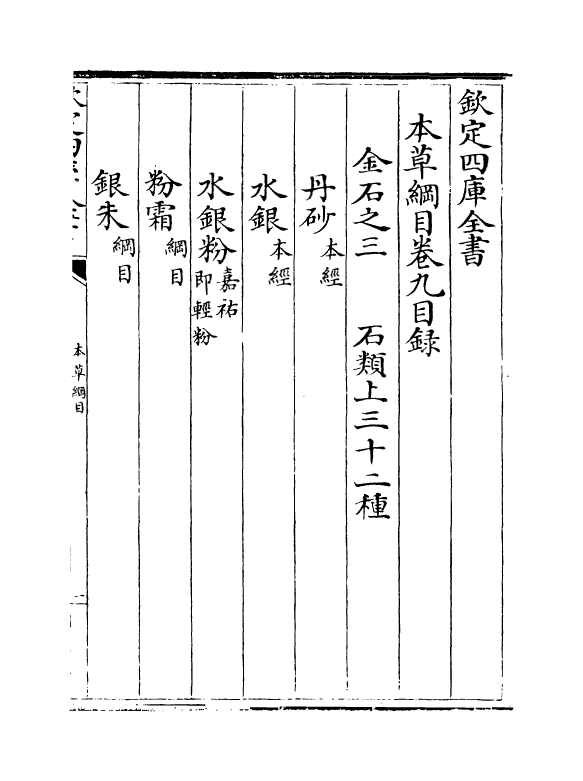 欽定四庫全書
本草綱目卷九目録
金石之三　石類上三十二種
丹砂本經
水銀本經
水銀粉嘉祐即輕粉
粉霜綱目
銀朱綱目
本草綱目